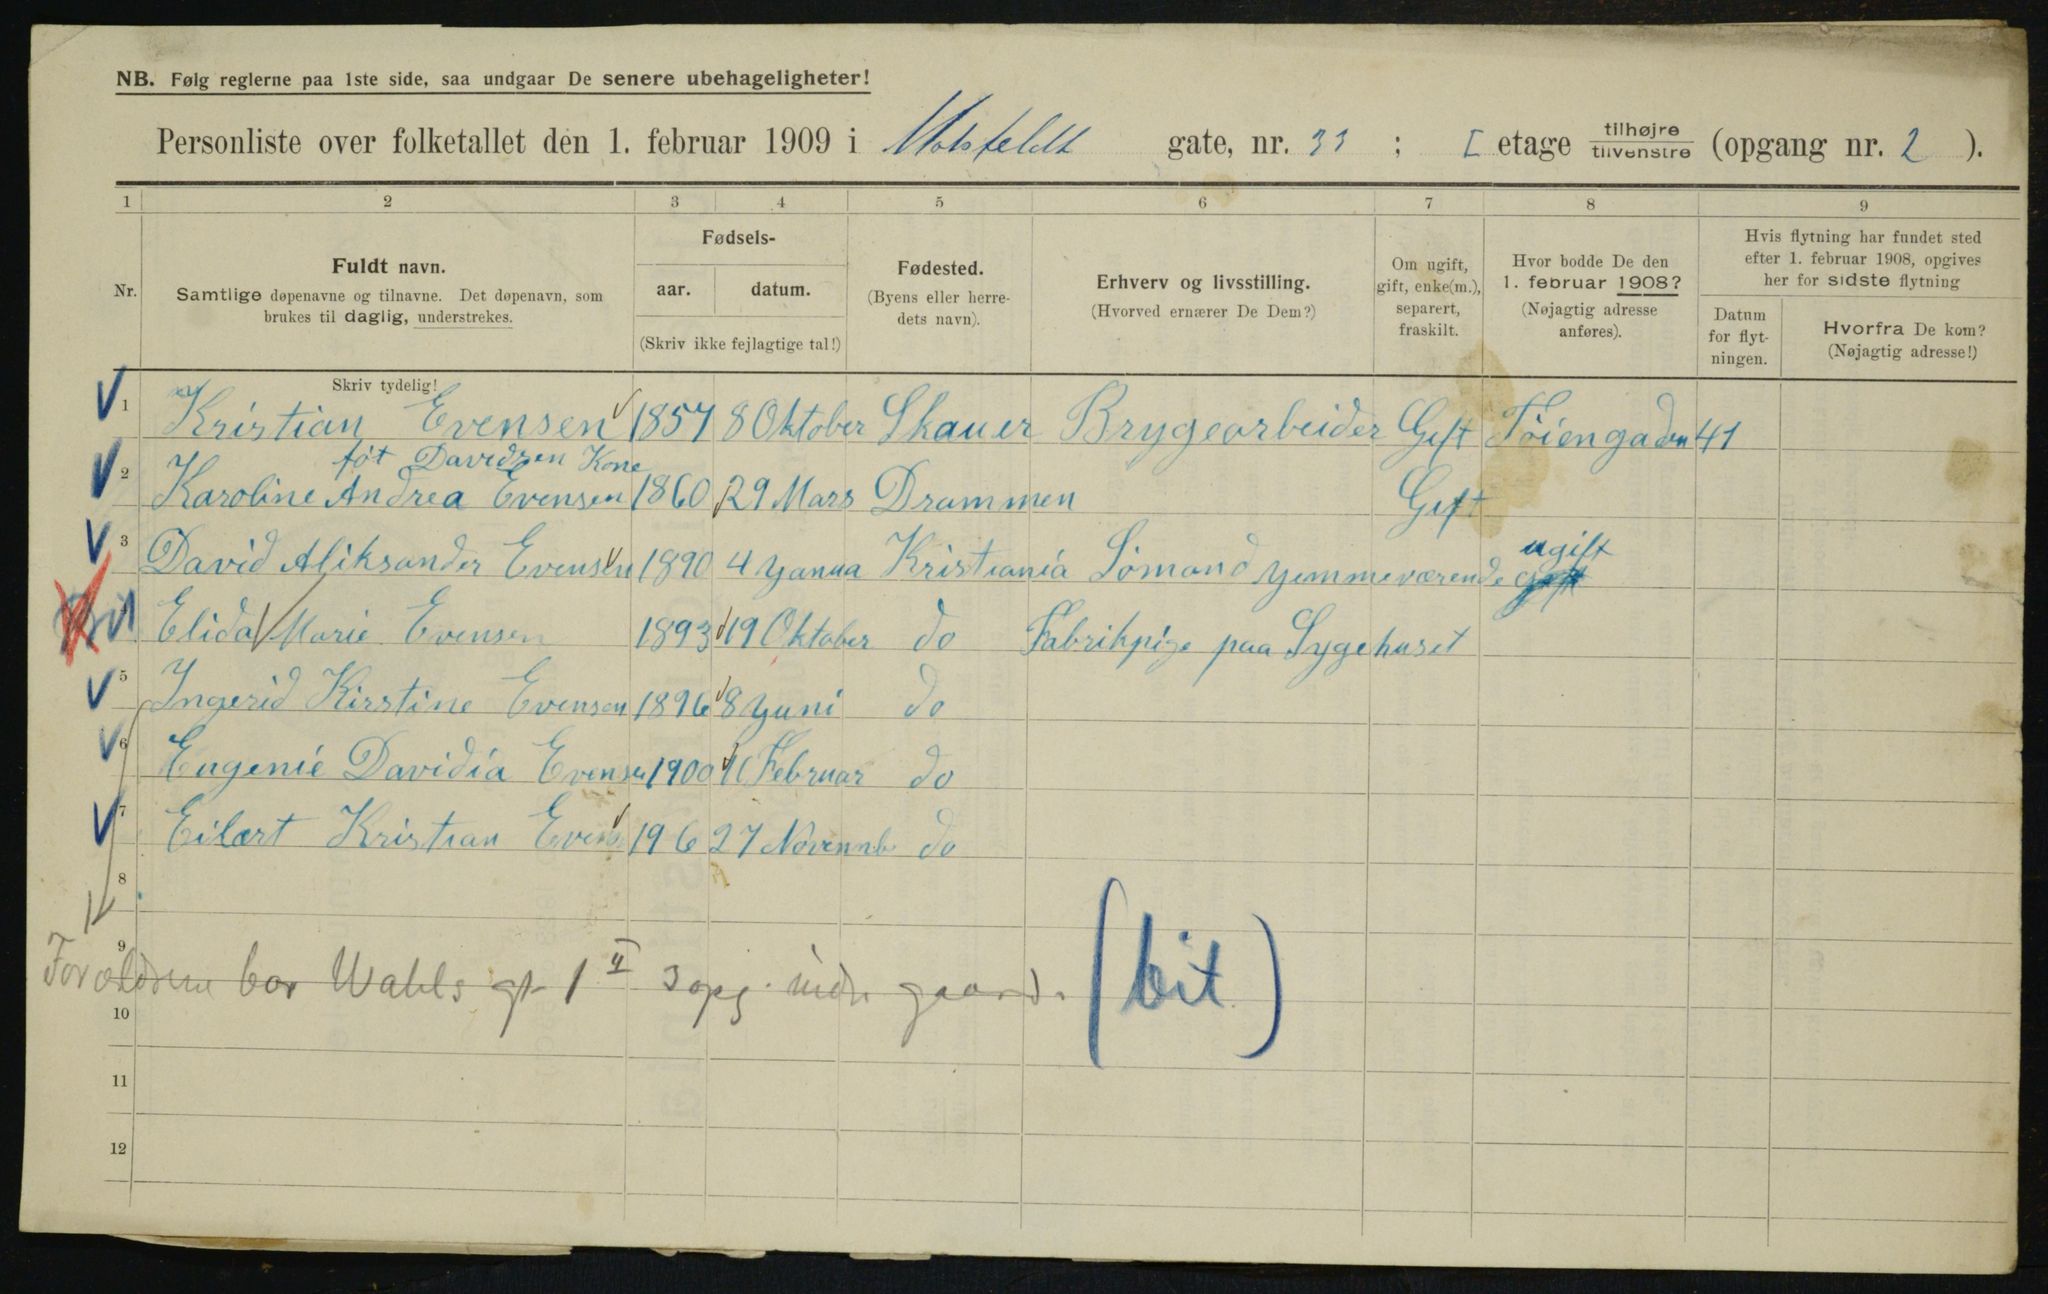 NB. Følg reglerne paa 1ste side, saa undgaar De senere ubehageligheter!
Personliste over folketallet den 1. februar 1909 i Motzfeldt gate, nr. 33 ; I etage tilhøjre tilvenstre (opgang nr. 2 ).
1 2 3 4 5 6 7 8 9
Nr.
Fuldt navn.
Samtlige døpenavne og tilnavne. Det døpenavn, som
brukes til daglig, understrekes.
Skriv tydelig!
Fødsels-
aar. datum.
(Skriv ikke fejlagtige tal!)
Fødested.
(Byens eller herre-
dets navn).
Erhverv og livsstilling.
(Hvorved ernærer De Dem?)
Om ugift,
gift, enke(m.),
separert,
fraskilt.
Hvor bodde De den
1. februar 1908?
(Nøjagtig adresse
anføres).
Hvis flytning har fundet sted
efter 1. februar 1908, opgives
her for sidste flytning
Datum
for flyt-
ningen.
Hvorfra De kom?
(Nøjagtig adresse!)
1 Kristian Evensen 1857 8 Oktober Skauer Brygearbeider Gift Tøiengaden 41
føt Davidsen Kone
2 Karoline Andrea Evensen 1860 29 Mars Drammen Gift
ugift
3 David Aliksander Evensen 1890 4 Yanua Kristiania Sømand yemmeværende
Elida Marie Evensen 1893 19 Oktober do Fabrikpige paa Sygehuset
5 Ingerid Kirstine Evensen 1896 8 Yuni do
6 Eugenie Davidia Evensen 1900 Februar do
7 Eilært Kristian Evens 1906 27 Novemb do
8
9
Forældrene bor Wahls gt 1 II 3 opg. indre gaard. (bit)
10
11
12